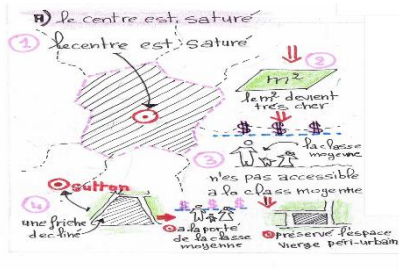 A) le centre est saturé
1
le centre est saturé
2
m²
le m² devient
très cher
$ $ $
3
la classe
moyenne
n'es pas accessible
a la class moyenne
4
sutton
une friche
decliné
$ $ $
a la porté
de la classe
moyenne
préservé l'espace
vierge péri-urbain